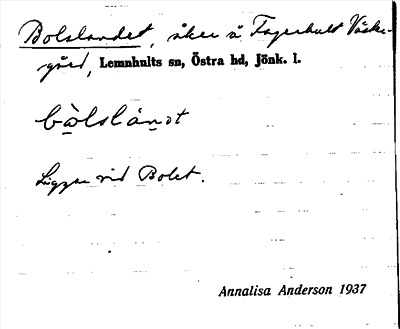 Bolslandet, åker å Fagerhult Väster-
gård, Lemnhults sn, Östra hd, Jönk. l.
bòlslánɔt
Ligger vid Bolet.
Annalisa Anderson 1937